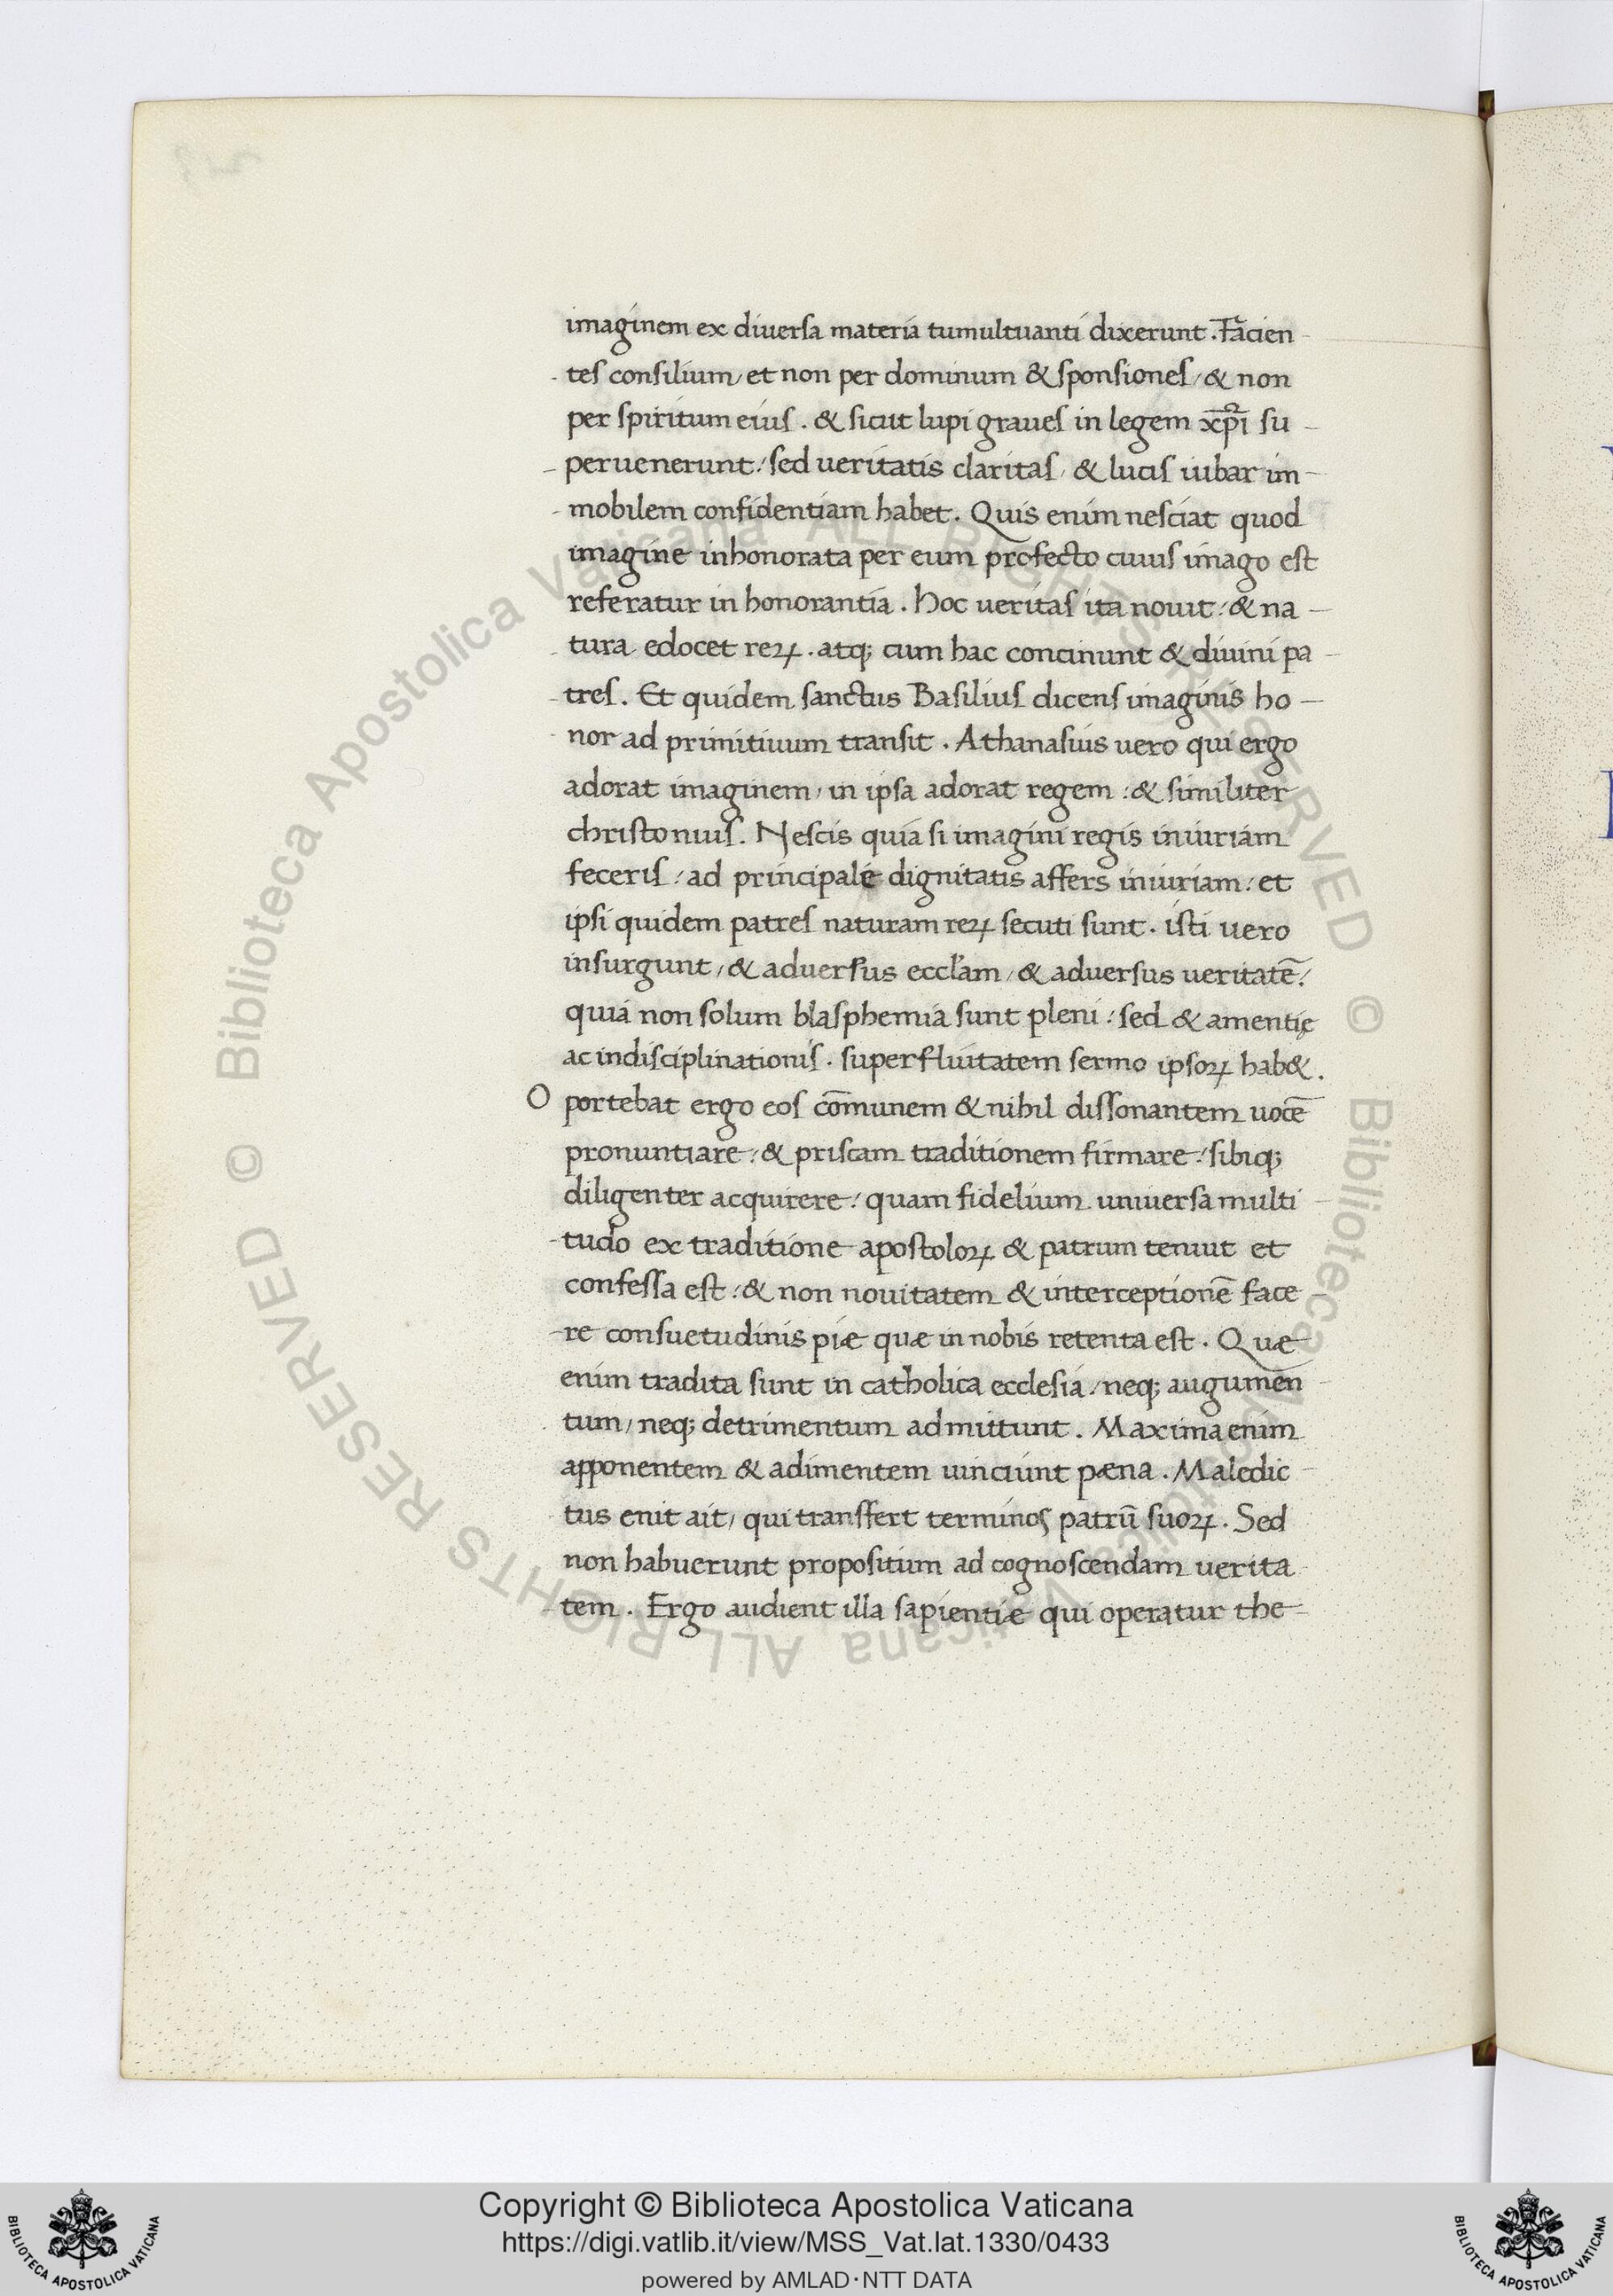 imaginem ex diuersa materia tumultuanti dixerunt. Facien
tes consilium, et non per dominum & sponsiones, & non
per spiritum eius. & sicut lupi graues in legem xp̄i su
peruenerunt: sed ueritatis claritas, & lucis iubar im
mobilem confidentiam habet. Quis enim nesciat quod
imagine inhonorata per eum profecto cuius imago est
referatur in honorantia. Hoc ueritas ita nouit: & na
tura edocet reꝝ. atq; cum hac concinunt & diuini pa
tres. Et quidem sanctus Basilius dicens imaginis ho
nor ad primitiuum transit. Athanasius uero qui ergo
adorat imaginem, in ipsa adorat regem: & similiter
christonius. Nescis quia si imagini regis iniuriam
feceris: ad principalę dignitatis affers iniuriam: et
ipsi quidem patres naturam reꝝ secuti sunt. isti uero
insurgunt, & aduersus eccl'am, & aduersus ueritatē:
quia non solum blasphemia sunt pleni: sed & amentię
ac indisciplinationis. superfluitatem sermo ipsoꝝ hab&.
O portebat ergo eos cōmunem & nihil dissonantem uocē
pronuntiare: & priscam traditionem firmare: sibiq;
diligenter acquirere: quam fidelium uniuersa multi
tudo ex traditione apostoloꝝ & patrum tenuit et
confessa est: & non nouitatem & interceptionē face
re consuetudinis piæ quæ in nobis retenta est. Quæ
enim tradita sunt in catholica ecclesia: neq; augumen
tum, neq; detrimentum admittunt. Maxima enim
apponentem & adimentem uinciunt pæna. Maledic
tus enit ait, qui transfert terminos patrū suoꝝ. Sed
non habuerunt propositum ad cognoscendam uerita
tem. Ergo audient illa sapientiæ qui operatur the
© Biblioteca Apostolica Vaticana ALL RIGHTS RESERVED
© Biblioteca Apostolica Vaticana ALL RIGHTS RESERVED
Copyright © Biblioteca Apostolica Vaticana
https://digi.vatlib.it/view/MSS_Vat.lat.1330/0433
powered by AMLAD·NTT DATA
BIBLIOTECA APOSTOLICA VATICANA
BIBLIOTECA APOSTOLICA VATICANA